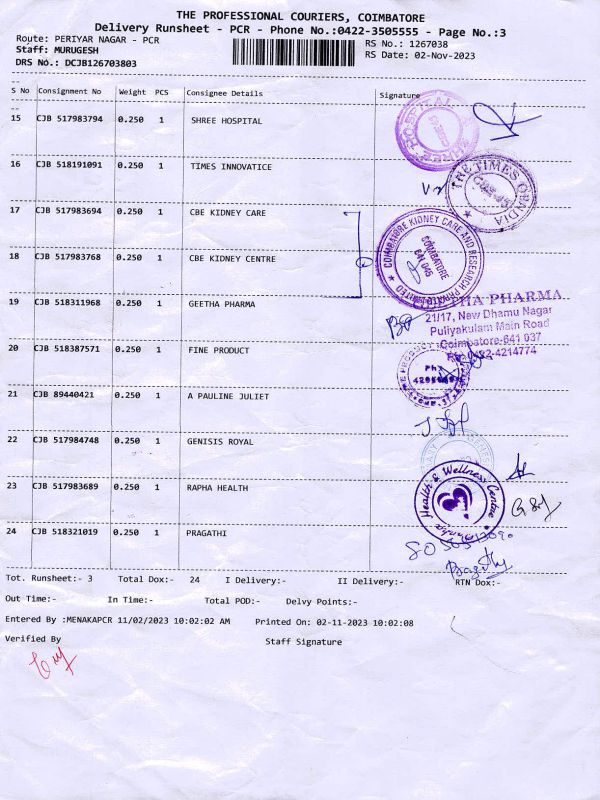 THE PROFESSIONAL COURIERS, COIMBATORE
Delivery Runsheet - PCR - Phone No.:0422-3505555 - Page No.:3
Route: PERIYAR NAGAR - PCR RS No.: 1267038
Staff: MURUGESH RS Date: 02-Nov-2023
DRS No.: DCJB126703803
S No Consignment No Weight PCS Consignee Details Signature
15 CJB 517983794 0.250 1 SHREE HOSPITAL
SHREE HOSPITAL
16 CJB 518191091 0.250 1 TIMES INNOVATICE
THE TIMES OF INDIA
17 CJB 517983694 0.250 1 CBE KIDNEY CARE
COIMBATORE KIDNEY CARE AND RESEARCH PRIVATE LIMITED
COIMBATORE
641 045
18 CJB 517983768 0.250 1 CBE KIDNEY CENTRE
19 CJB 518311968 0.250 1 GEETHA PHARMA
PHARMA
21/17, New Dhamu Nagar
Puliyakulam Main Road
Coimbatore-641 037
20 CJB 518387571 0.250 1 FINE PRODUCT
21 CJB 89440421 0.250 1 A PAULINE JULIET
22 CJB 517984748 0.250 1 GENISIS ROYAL
23 CJB 517983689 0.250 1 RAPHA HEALTH
Health & Wellness Centre
24 CJB 518321019 0.250 1 PRAGATHI
Tot. Runsheet:- 3 Total Dox:- 24 I Delivery:- II Delivery:- RTN Dox:-
Out Time:- In Time:- Total POD:- Delvy Points:-
Entered By :MENAKAPCR 11/02/2023 10:02:02 AM Printed On: 02-11-2023 10:02:08
Verified By Staff Signature